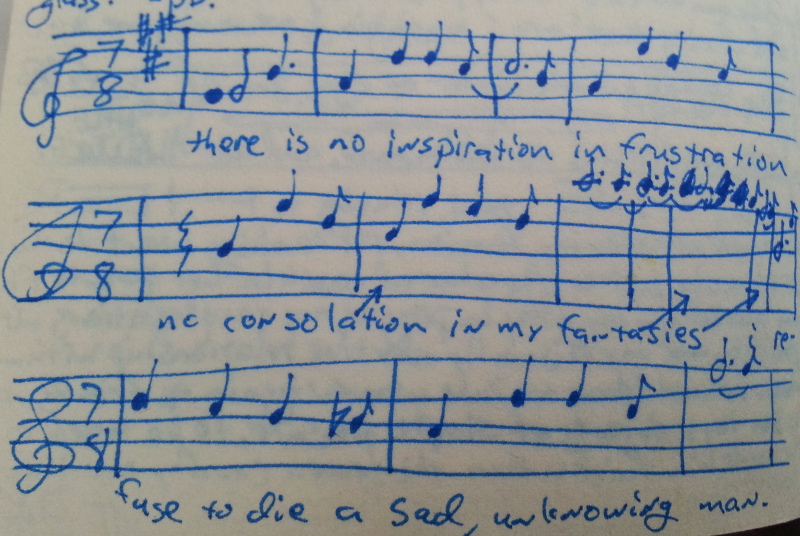 glass.
7 8
there is no inspiration in frustration
7 8
no consolation in my fantasies re-
7 8
fuse to die a sad, unknowing man.